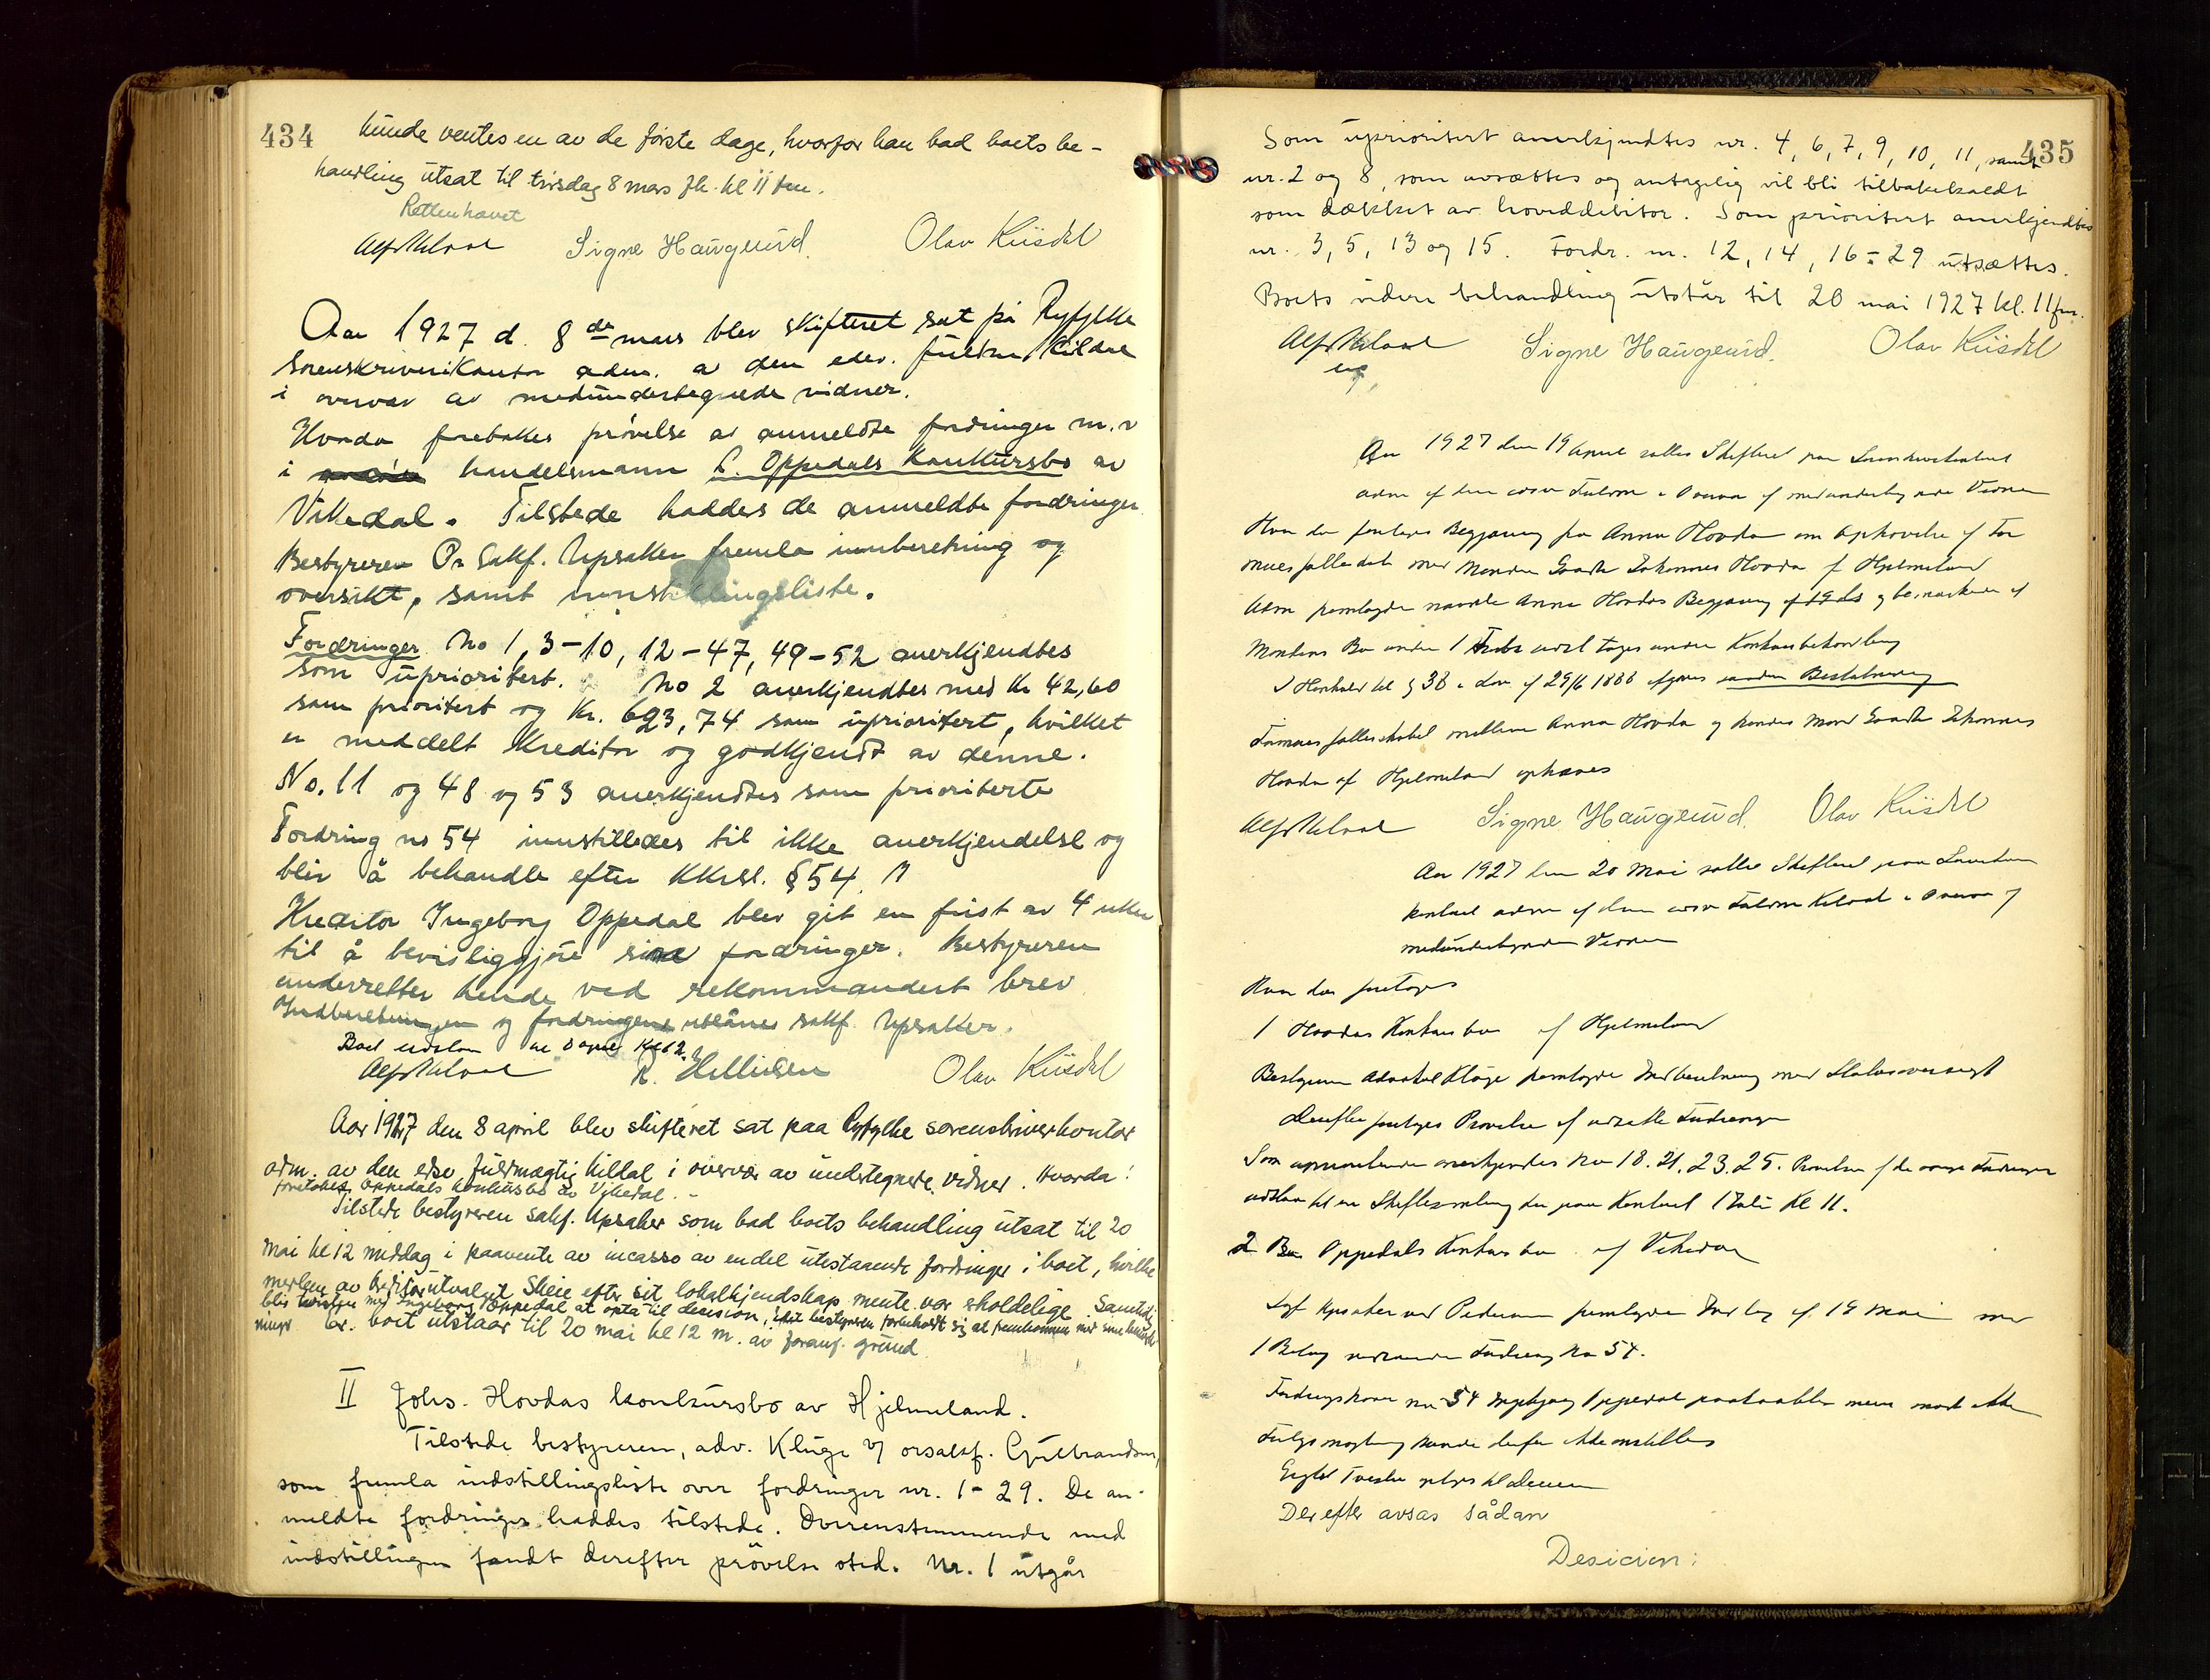 434
kunde ventes en av de første dage, hvorfor han bad boets be-
handling utsat til tirsdag 8 mars fk. kl 11 fm.
Retten hævet
Signe Haugeund. Olav Kiisdal
Aar 1927 d. 8de mars blev skifteret sat på Ryfylke
Sorenskriverikontor adm. a den edsv. fuldm. Kildal
i overvær av medundertegnede vidner.
Hvorda foretokes prøvelse av anmeldte fordringer m.v
i handelsmann Oppedals Konkursbo av
Vikedal. Tilstede haddes de anmeldte fordringer
Bestyreren Or Sakf. Upsaker fremla innberetning og
oversikt, samt innstillingsliste.
Fordringer No 1, 3-10, 12-47, 49-52 anerkjendtes
som uprioritert. No 2 anerkjendtes med Kr 42,60
som prioritert og Kr. 693,74 som uprioritert, hvilket
er meddelt Kreditor og godkjendt av denne.
No. 11 og 48 og 53 anerkjendtes som prioriterte
Fordring no 54 innstilledes til ikke anerkjendelse og
blir å behandle efter KKrsl. §54.
Kreditor Ingeborg Oppedal blev git en frist av 4 uker
til å bevisliggjøre sine fordringer. Bestyreren
underretter hende ved rekommandert brev
Indberetningen og fordringene utlånes sakf. Upsaker.
Boet udstaar til 8 april Kl 12.
R. Helliesen Olav Kiisdal
Aar 1927 den 8 april blev skifteret sat paa Ryfylke sorenskriverkontor
adm. av den edsv. fuldmægtig Kildal i overvær av undertegnede vidner. Hvorda:
foretokes Oppedals konkursbo av Vikedal.-
Tilstede bestyreren sakf. Upsaker som bad boets behandling utsat til 20
mai kl 12 middag i paavente av incasso av endel utestaaende fordringer i boet, hvilke
medlem av kreditorutvalget Skeie efter sit lokalkjendskap mente var erholdelige. Samtidig
blir tvisten med Ingeborg Oppedal at opta til decision, idet bestyreren forbeholdt sig at fremkomme med sine
boet utstaar til 20 mai kl 12 m. av foranf. grund
II Johs. Hovdas konkursbo av Hjelmeland.
Tilstede bestyreren, adv. Kluge v/ orsakf. Gulbrandsen,
som fremla indstillingsliste over fordringer nr. 1-29. De an-
meldte fordringer haddes tilstede. Overenstemmende med
indstillingen fandt derefter prøvelse sted. Nr. 1 utgår
435
Som uprioritert anerkjendtes nr. 4, 6, 7, 9, 10, 11, samt
nr. 2 og 8, som avsættes og antagelig vil bli tilbakekaldt
som dækket av hoveddebitor. Som prioritert anerkjendtes
nr. 3, 5, 13 og 15. Fordr. nr. 12, 14, 16-29 utsættes.
Boets videre behandling utstår til 20 mai 1927 kl. 11 fm.
Signe Haugeund. Olav Kiisdal
Aar 1927 den 19 april sattes Skifteret paa Sorenskriverkontoret
adm af den edsv Fuldm i Overvær af medundertegnede Vidner
Hvor da foretoges Begjæring fra Anna Hovda om Ophævelse af For
muesfælleskab med Manden Gaardbr Johannes Hovda af Hjelmeland
Adm fremlagde nævnte Anna Hovdas Begjæring af 19 ds og bemærkede at
Mandens Bo under 1 Febr udst toges under Konkursbehandling
I Henhold til § 38 i Lov af 29/6 1888 afgaves saadan Beslutning
Formuesfælleskabet mellem Anna Hovda og hendes Mand Gaardbr Johannes
Hovda af Hjelmeland ophæves
Signe Haugeund. Olav Kiisdal
Aar 1927 den 20 Mai sattes Skifteret paa Sorenskriver
kontoret adm af den edsv Fuldm Kildal i Overvær af
medundertegnede Vidner
Hvor da foretoges
1 Hovdas Konkursbo af Hjelmeland
Bestyreren Advokat Kluge fremlagde Indberetning med Statusoversigt
Derefter foretoges Prøvelse af udsatte Fordringer
Som anerkjendes No 18. 21. 23. 25. Prøvelsen af de øvrige Fordringer
udstaar til en Skiftesamling her paa Kontoret 1 Juli Kl 11.
2 Oppedals Konkursbo af Vikedal
Upsaker ved Pedersen fremlagde Indlæg af 19 Mai med
1 Bilag vedrørende Fordring No 54.
Fordringshaver No 54 Ingeborg Oppedal paaraabtes men mødte ikke
Forligsmægling kunde derfor ikke anstilles
Derefter avsas sådan
Desicion: